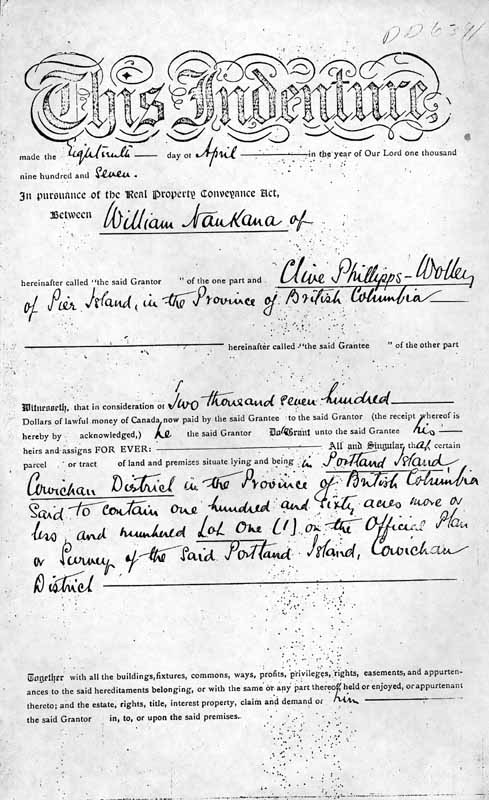 DD6391
This Indenture
made the Eighteenth day of April in the year of Our Lord one thousand
nine hundred and Seven.
In pursuance of the Real Property Conveyance Act,
Between William Naukana of
hereinafter called "the said Grantor " of the one part and Clive Phillipps-Wolley
of Pier Island, in the Province of British Columbia
hereinafter called "the said Grantee " of the other part
Witnesseth, that in consideration of Two thousand seven hundred
Dollars of lawful money of Canada now paid by the said Grantee to the said Grantor (the receipt whereof is
hereby by acknowledged,) he the said Grantor Doth Grant unto the said Grantee his
heirs and assigns FOR EVER: All and Singular, that certain
parcel or tract of land and premises situate lying and being in Portland Island
Cowichan District in the Province of British Columbia
Said to contain one hundred and sixty acres more or
less, and numbered Lot One (1) on the Official Plan
or Survey of the Said Portland Island, Cowichan
District
Together with all the buildings, fixtures, commons, ways, profits, privileges, rights, easements, and appurten-
ances to the said hereditaments belonging, or with the same or any part thereof, held or enjoyed, or appurtenant
thereto; and the estate, rights, title, interest property, claim and demand of him
the said Grantor in, to, or upon the said premises.